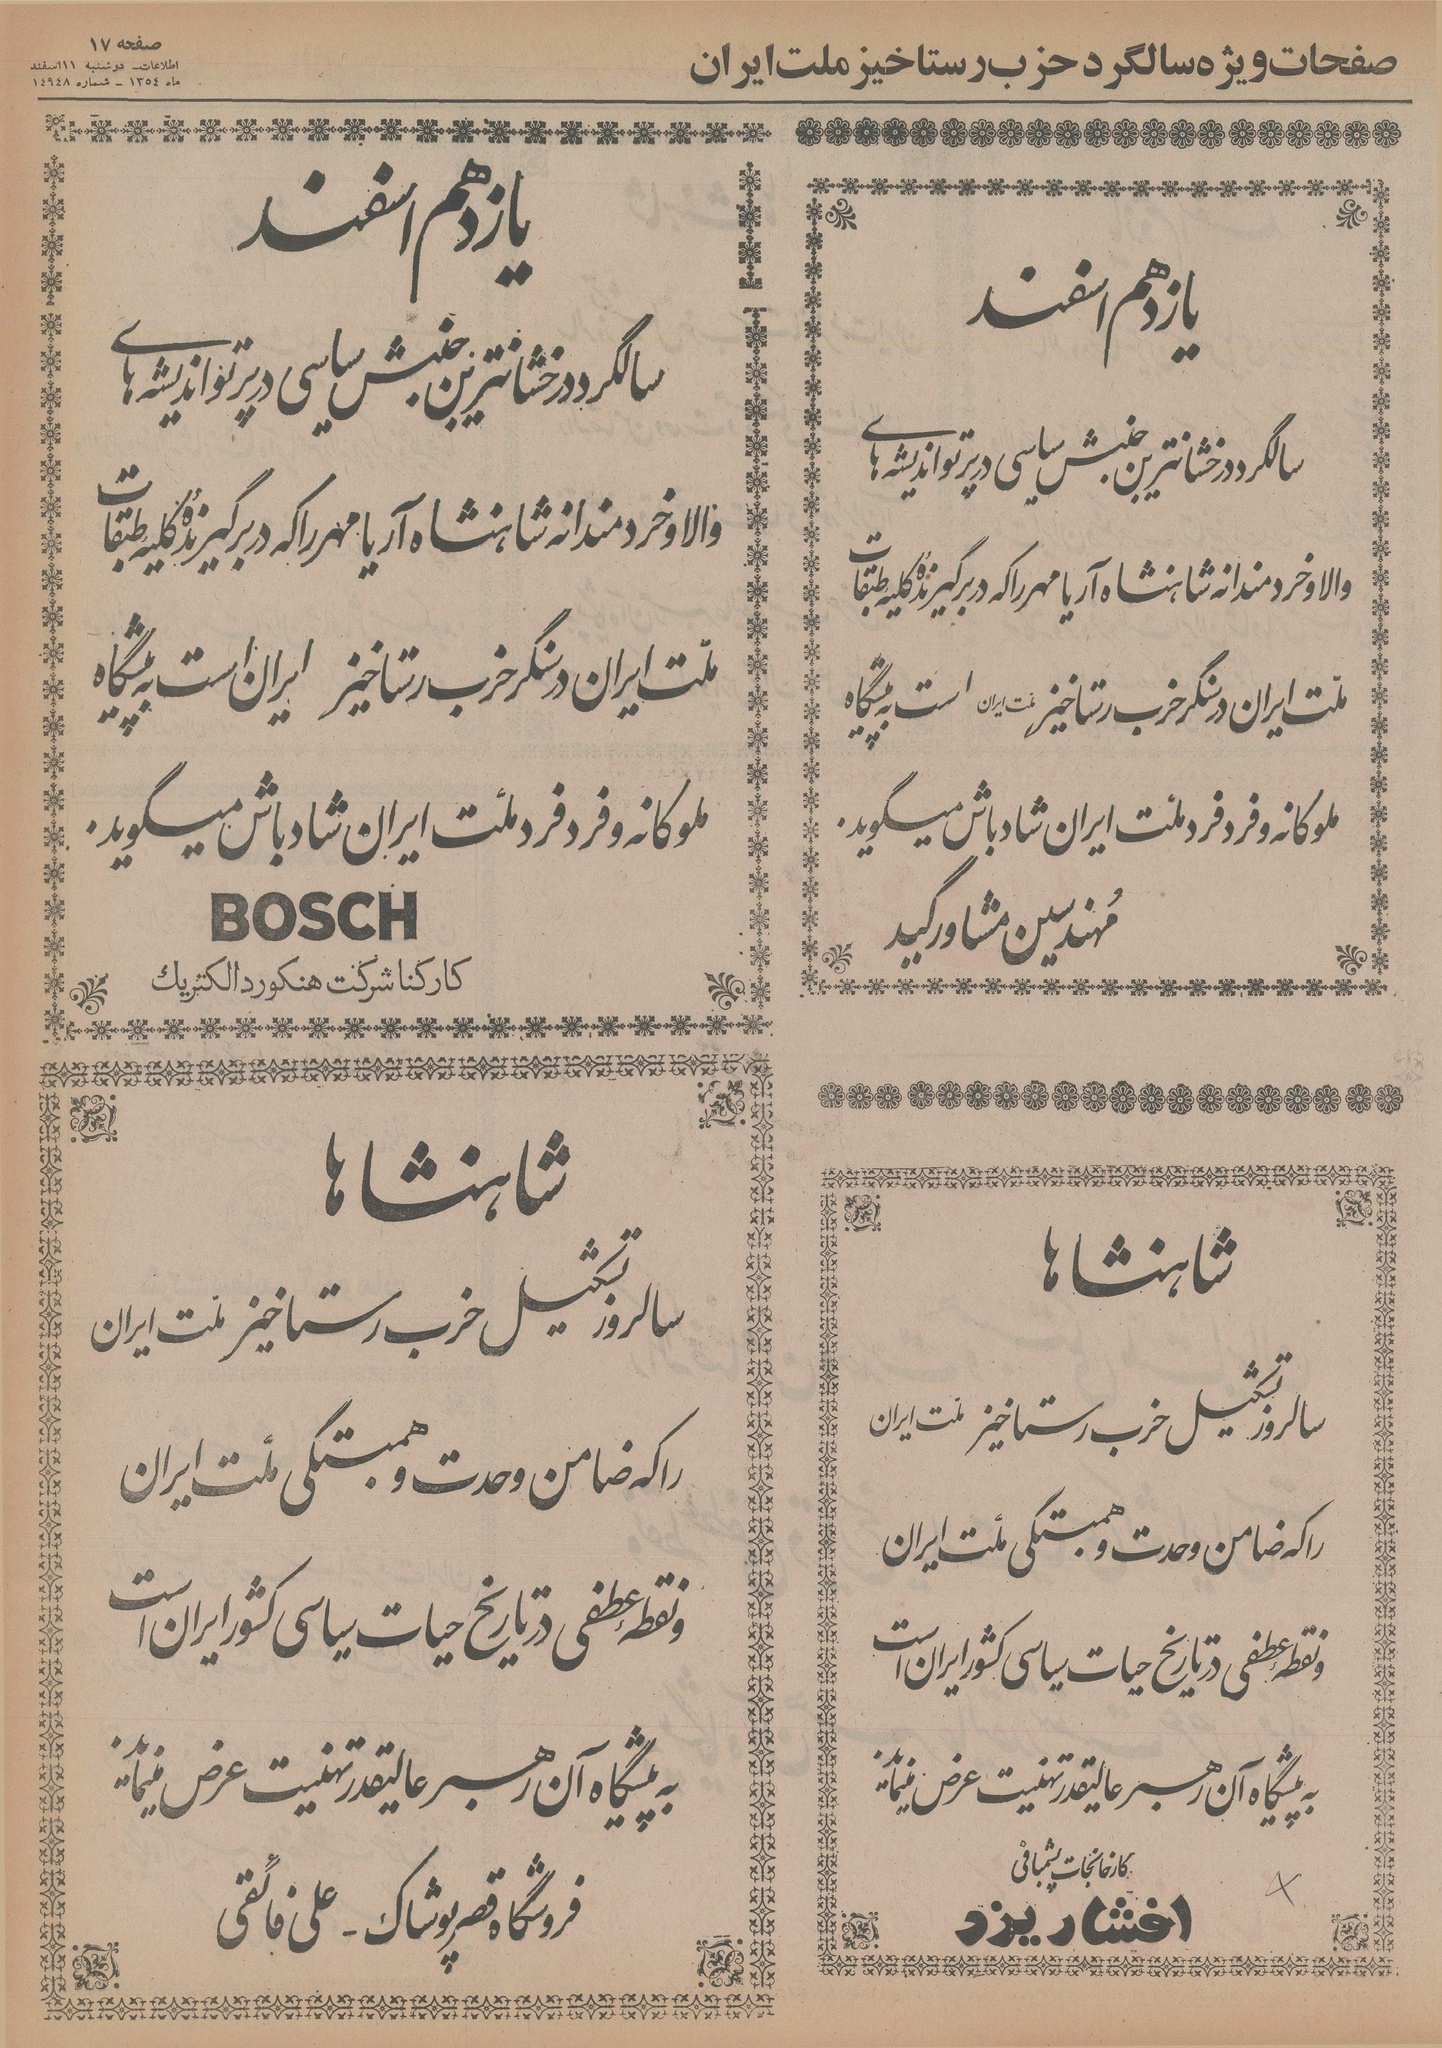 صفحات ویژه سالگرد حزب رستاخیز ملت ایران
صفحه ۱۷
اطلاعات - دوشنبه ۱۱ اسفند
ماه ۱۳۵٤ - شماره ۱٤۹٤۸
یازدهم اسفند
سالگرد درخشانترین جنبش سیاسی در پرتو اندیشه های
والا و خردمندانه شاهنشاه آریامهر را که در برگیرندهٔ کلیه طبقات
ملّت ایران در سنگر حزب رستاخیز ملت ایران است به پیشگاه
ملوکانه و فرد فرد ملّت ایران شادباش میگوید.
مهندسین مشاور گید
یازدهم اسفند
سالگرد درخشانترین جنبش سیاسی در پرتو اندیشه های
والا و خردمندانه شاهنشاه آریامهر را که در برگیرندهٔ کلیه طبقات
ملّت ایران در سنگر حزب رستاخیز ایران است به پیشگاه
ملوکانه و فرد فرد ملّت ایران شادباش میگوید.
BOSCH
کارکنا شرکت هنکورد الکتریك
شاهنشاها
سالروز تشکیل حزب رستاخیز ملّت ایران
را که ضامن وحدت و همبستگی ملّت ایران
و نقطه عطفی در تاریخ حیات سیاسی کشور ایران است
به پیشگاه آن رهبر عالیقدر تهنیت عرض مینماید.
کارخانجات پشمبافی
افشار یزد
شاهنشاها
سالروز تشکیل حزب رستاخیز ملّت ایران
را که ضامن وحدت و همبستگی ملّت ایران
و نقطه عطفی در تاریخ حیات سیاسی کشور ایران است
به پیشگاه آن رهبر عالیقدر تهنیت عرض مینماید.
فروشگاه قصر پوشاک - علی فائقی